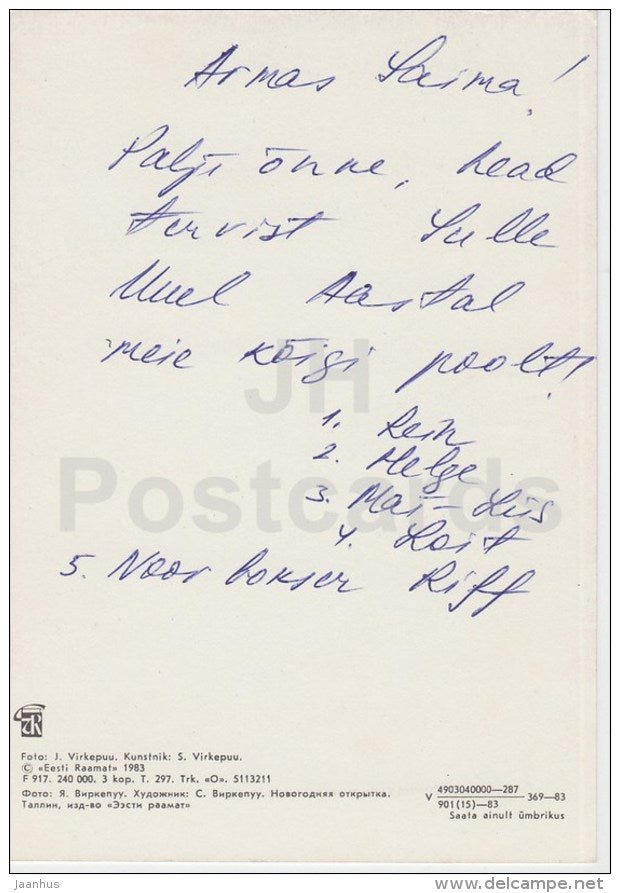 Armas Saima!
Palju õnne, head
tervist Sulle
Uuel Aastal
meie kõigi poolt!
1. Rein
2. Helge
3. Mai-Liis
4. Loit
5. Noor bokser Riff
JH
Postcards
Foto: J. Virkepuu. Kunstnik: S. Virkepuu.
© «Eesti Raamat» 1983
F 917. 240 000. 3 kop. T. 297. Trk. «O». 5113211
Фото: Я. Виркепуу. Художник: С. Виркепуу. Новогодняя открытка.
Таллин, изд-во «Ээсти раамат»
V 4903040000—287
901(15)—83 369—83
Saata ainult ümbrikus
jaanhus
www.delcampe.net